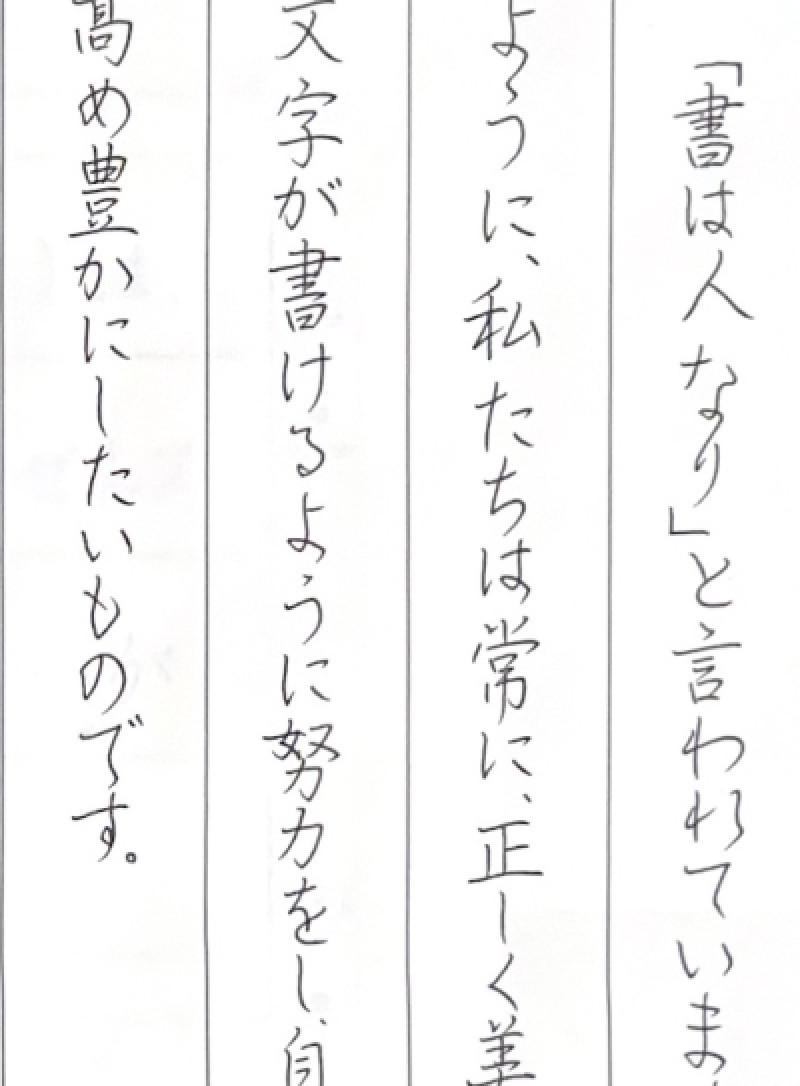 「書は人なり」と言われていま
ように、私たちは常に、正しく美
文字が書けるように努力をし、自
高め豊かにしたいものです。